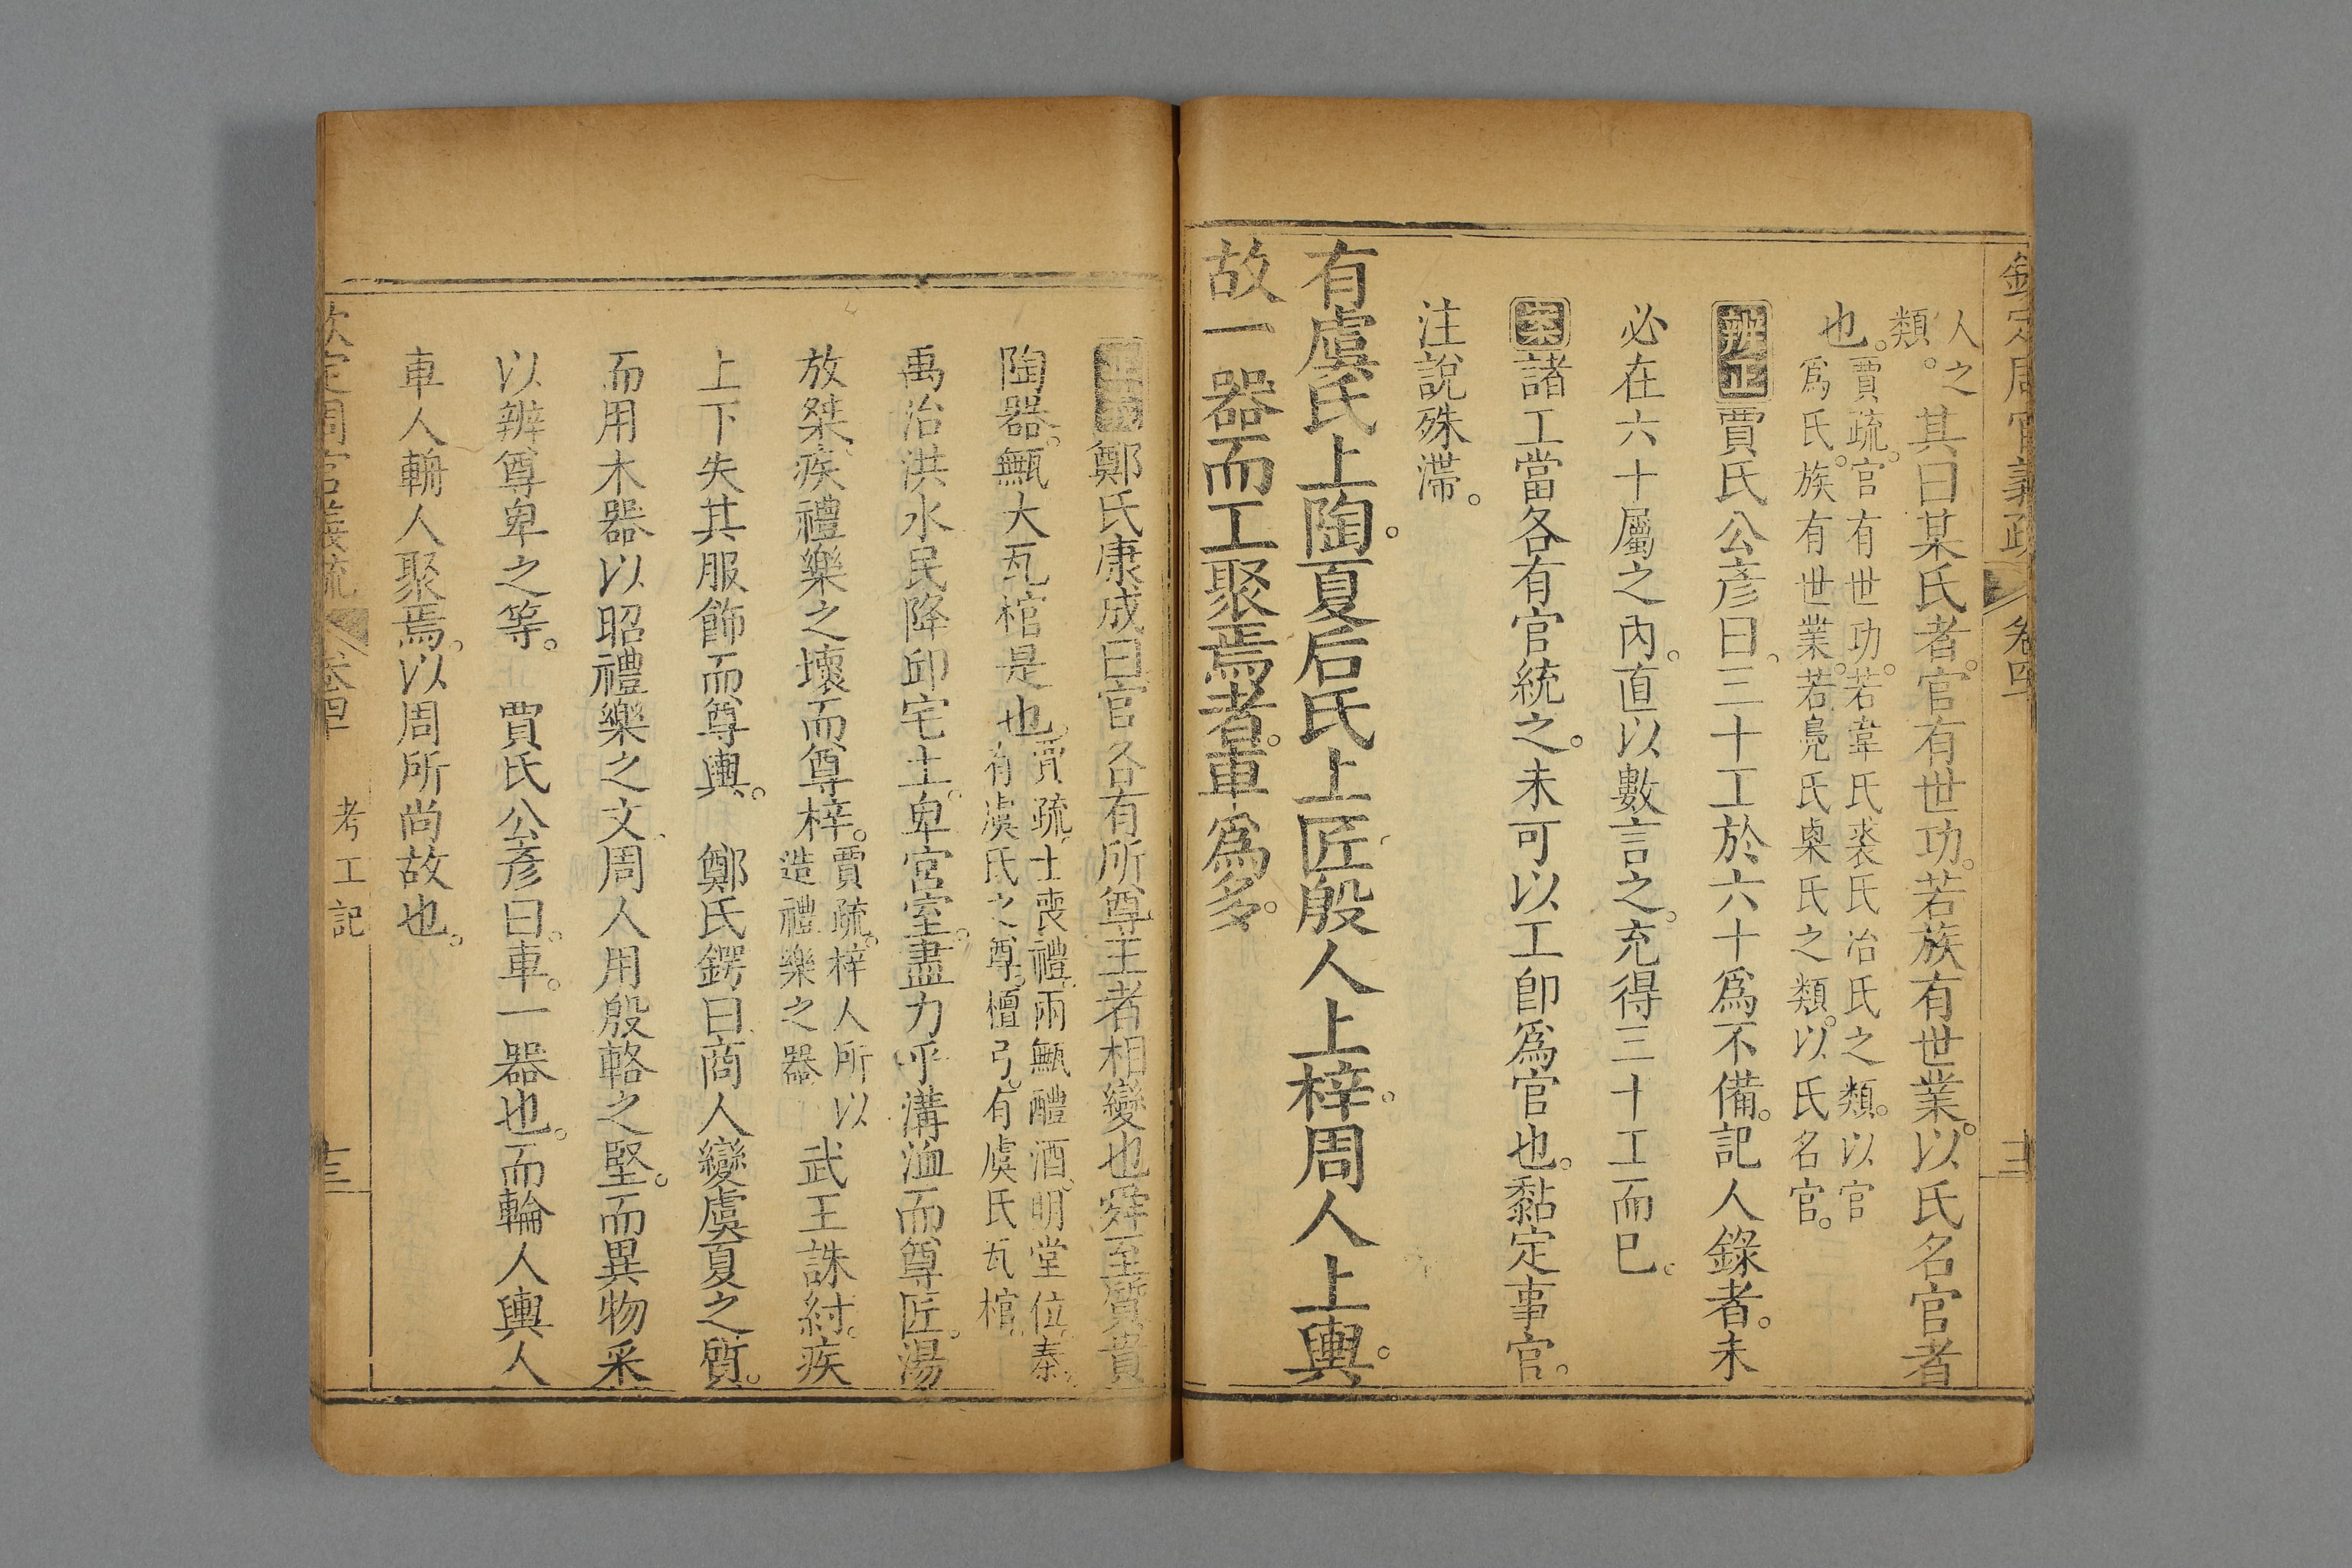 欽定周官義疏 卷四 十三
人之類。其曰某氏者。官有世功。若族有世業。以氏名官者
也。賈疏。官有世功。若韋氏裘氏冶氏之類。以官爲氏。族有世業。若鳧氏㮚氏之類。以氏名官。
辨正賈氏公彥曰。三十工於六十爲不備。記人錄者。未
必在六十屬之內。直以數言之。充得三十工而巳。
案諸工當各有官統之。未可以工卽爲官也。黏定事官。
注說殊滯。
有虞氏上陶。夏后氏上匠。殷人上梓。周人上輿。
故一器而工聚焉者。車爲多。
正義鄭氏康成曰。官各有所尊。王者相變也。舜至質。貴
陶器。甒大瓦棺是也。賈疏。士喪禮。兩甒醴酒。明堂位。泰。有虞氏之尊。檀弓。有虞氏瓦棺。
禹治洪水。民降邱宅土。卑宮室。盡力乎溝洫而尊匠。湯
放桀。疾禮樂之壞而尊梓。賈疏。梓人所以造禮樂之器。 武王誅紂。疾
上下失其服飾而尊輿。 鄭氏鍔曰。商人變虞夏之質。
而用木器以昭禮樂之文。周人用殷輅之堅。而異物采
以辨尊卑之等。 賈氏公彥曰。車。一器也。而輪人輿人
車人輈人聚焉。以周所尚故也。
欽定周官義疏 卷四 考工記 十三